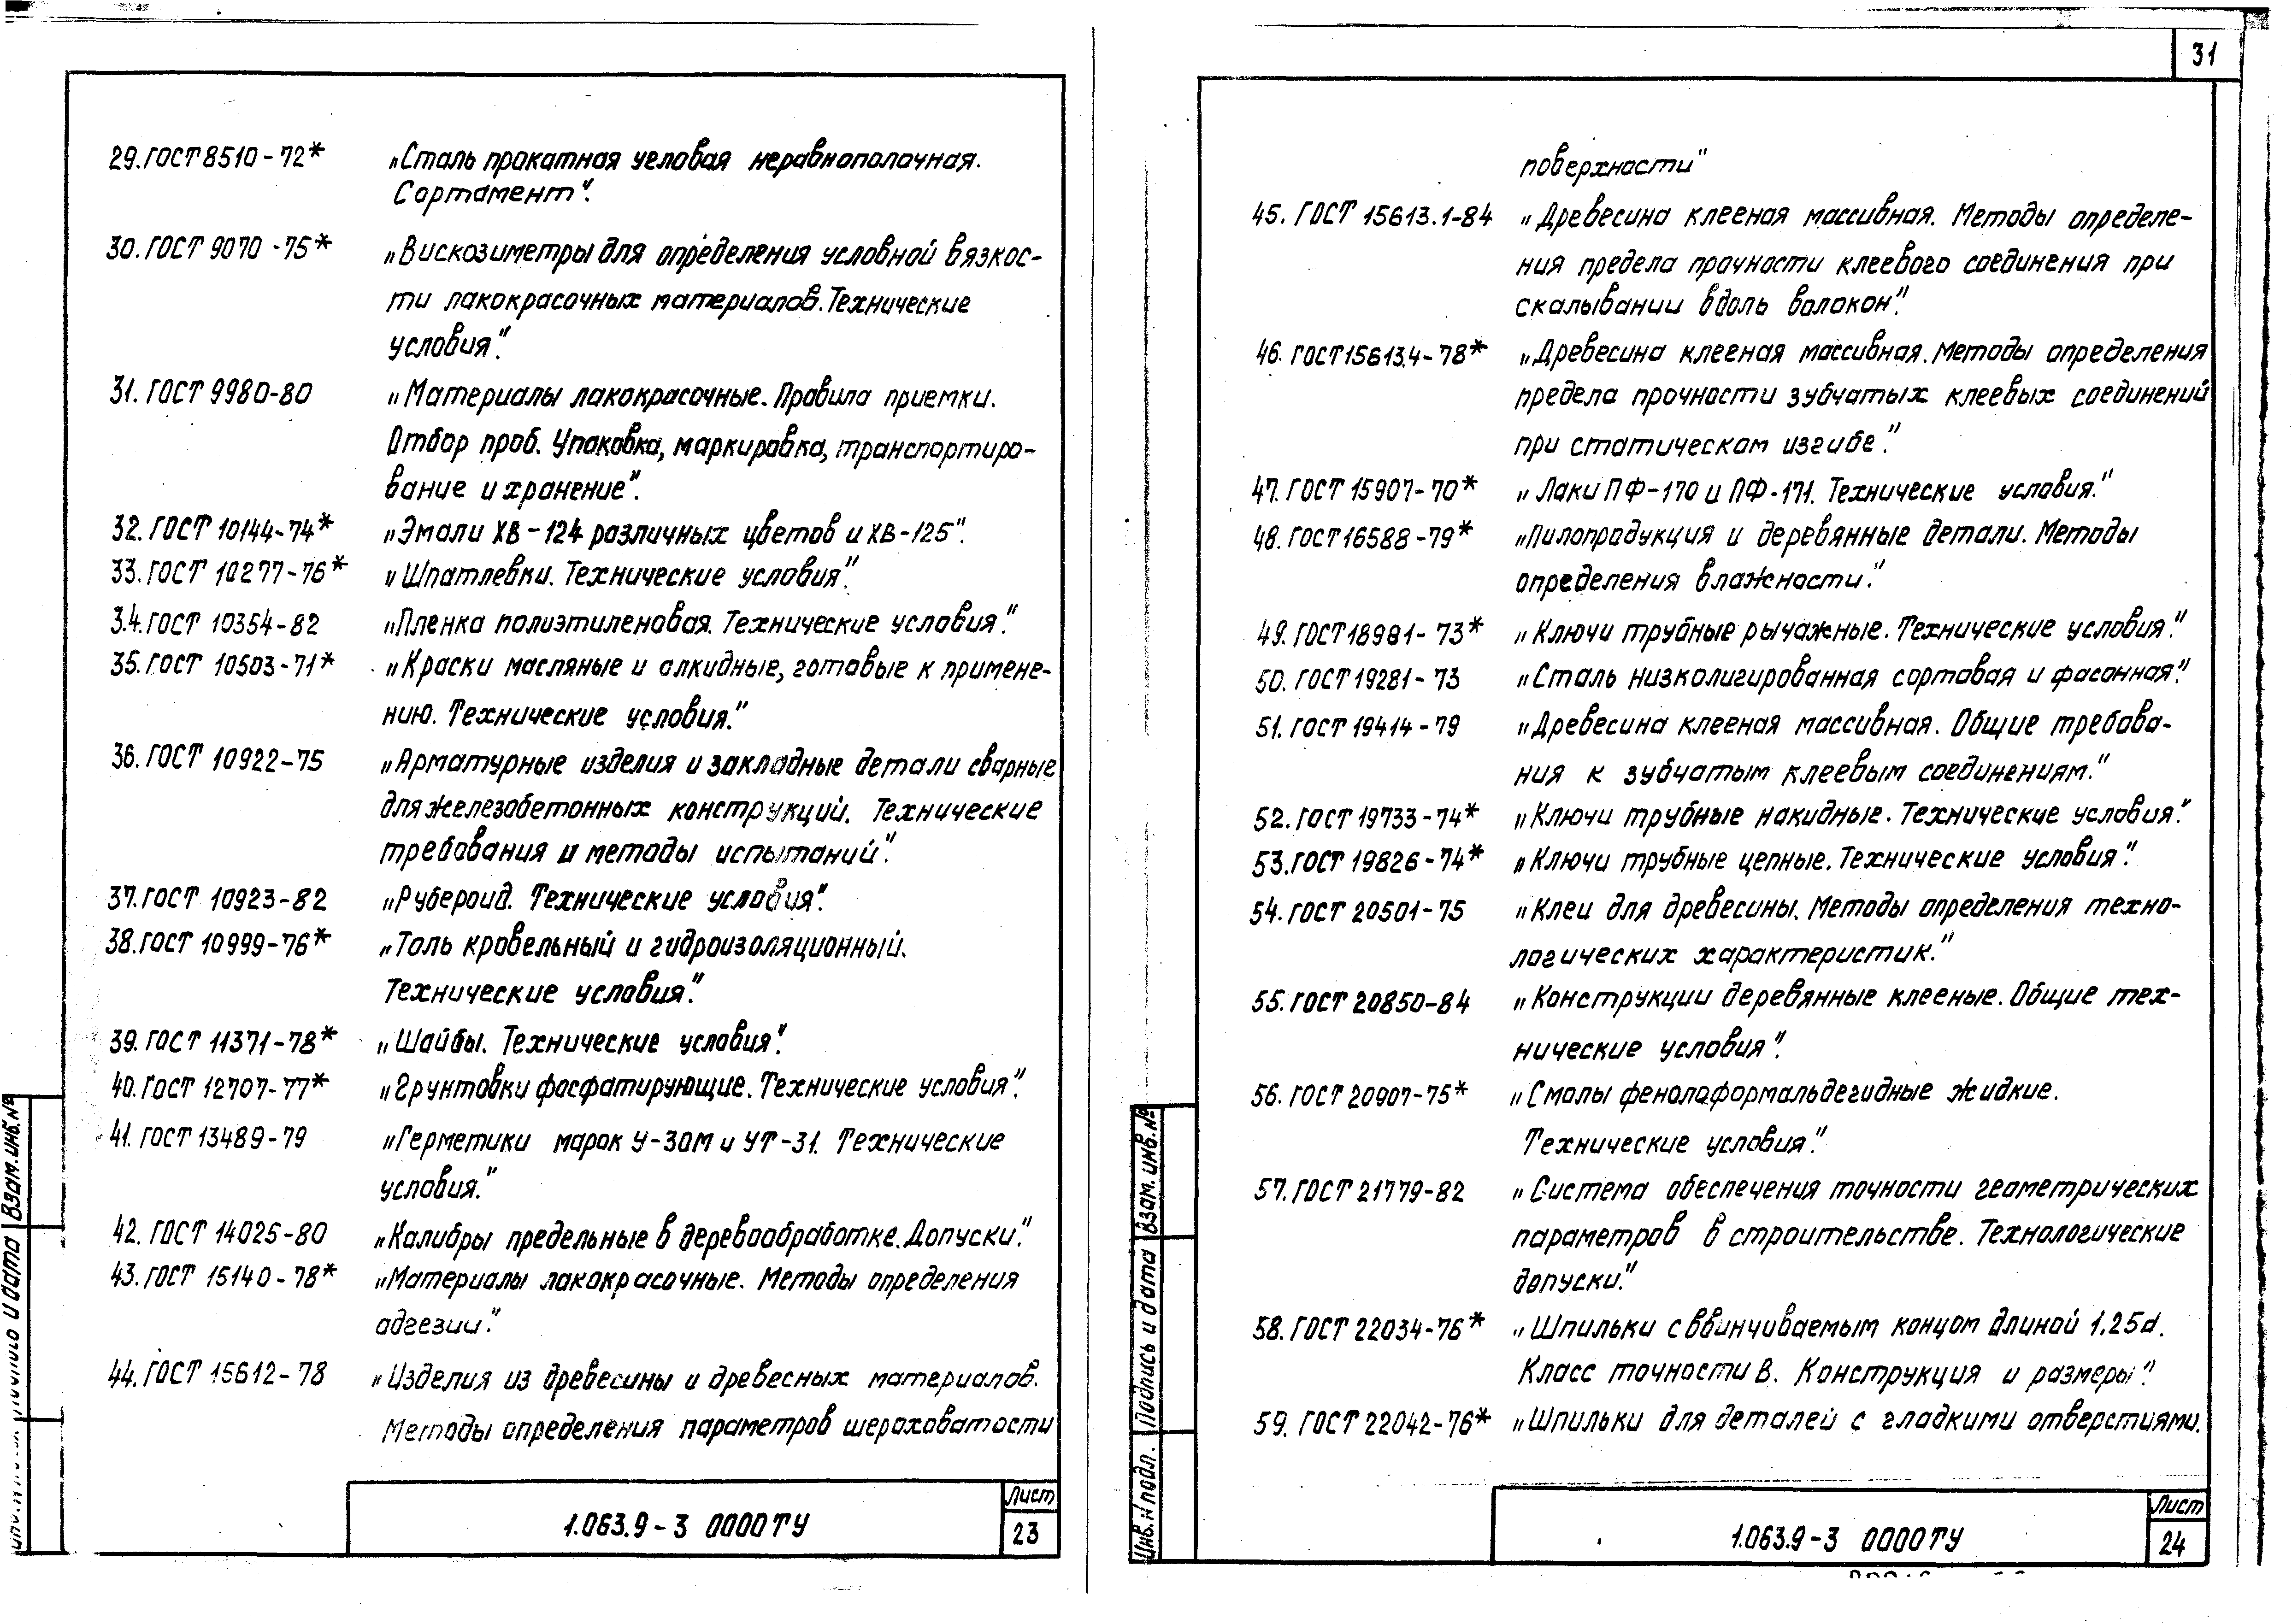 29. ГОСТ 8510-72* „Сталь прокатная угловая неравнополочная.
Сортамент".
30. ГОСТ 9070-75* „Вискозиметры для определения условной вязкос-
ти лакокрасочных материалов. Технические
условия".
31. ГОСТ 9980-80 „Материалы лакокрасочные. Правила приемки.
Отбор проб. Упаковка, маркировка, транспортиро-
вание и хранение".
32. ГОСТ 10144-74* „Эмали ХВ-124 различных цветов и ХВ-125".
33. ГОСТ 10277-76* „Шпатлевки. Технические условия".
34. ГОСТ 10354-82 „Пленка полиэтиленовая. Технические условия."
35. ГОСТ 10503-71* „Краски масляные и алкидные, готовые к примене-
нию. Технические условия."
36. ГОСТ 10922-75 „Арматурные изделия и закладные детали сварные
для железобетонных конструкций. Технические
требования и методы испытаний".
37. ГОСТ 10923-82 „Рубероид. Технические условия".
38. ГОСТ 10999-76* „Толь кровельный и гидроизоляционный.
Технические условия".
39. ГОСТ 11371-78* „Шайбы. Технические условия".
40. ГОСТ 12707-77* „Грунтовки фосфатирующие. Технические условия".
41. ГОСТ 13489-79 „Герметики марок У-30М и УТ-31. Технические
условия."
42. ГОСТ 14025-80 „Калибры предельные в деревообработке. Допуски".
43. ГОСТ 15140-78* „Материалы лакокрасочные. Методы определения
адгезии".
44. ГОСТ 15612-78 „Изделия из древесины и древесных материалов.
Методы определения параметров шероховатости
1.063.9-3 0000ТУ
Лист
23
Взам. инв. №
31
поверхности"
45. ГОСТ 15613.1-84 „Древесина клееная массивная. Методы определе-
ния предела прочности клеевого соединения при
скалывании вдоль волокон".
46. ГОСТ 15613.4-78* „Древесина клееная массивная. Методы определения
предела прочности зубчатых клеевых соединений
при статическом изгибе".
47. ГОСТ 15907-70* „Лаки ПФ-170 и ПФ-171. Технические условия."
48. ГОСТ 16588-79* „Пилопродукция и деревянные детали. Методы
определения влажности".
49. ГОСТ 18981-73* „Ключи трубные рычажные. Технические условия".
50. ГОСТ 19281-73 „Сталь низколигированная сортовая и фасонная".
51. ГОСТ 19414-79 „Древесина клееная массивная. Общие требова-
ния к зубчатым клеевым соединениям."
52. ГОСТ 19733-74* „Ключи трубные накидные. Технические условия".
53. ГОСТ 19826-74* „Ключи трубные цепные. Технические условия".
54. ГОСТ 20501-75 „Клеи для древесины. Методы определения техно-
логических характеристик."
55. ГОСТ 20850-84 „Конструкции деревянные клееные. Общие тех-
нические условия".
56. ГОСТ 20907-75* „Смолы фенолоформальдегидные жидкие.
Технические условия".
57. ГОСТ 21779-82 „Система обеспечения точности геометрических
параметров в строительстве. Технологические
допуски."
58. ГОСТ 22034-76* „Шпильки с ввинчиваемым концом длиной 1,25d.
Класс точности В. Конструкция и размеры".
59. ГОСТ 22042-76* „Шпильки для деталей с гладкими отверстиями.
1.063.9-3 0000ТУ
Лист
24
Инв. № подл.
Подпись и дата
Взам. инв. №